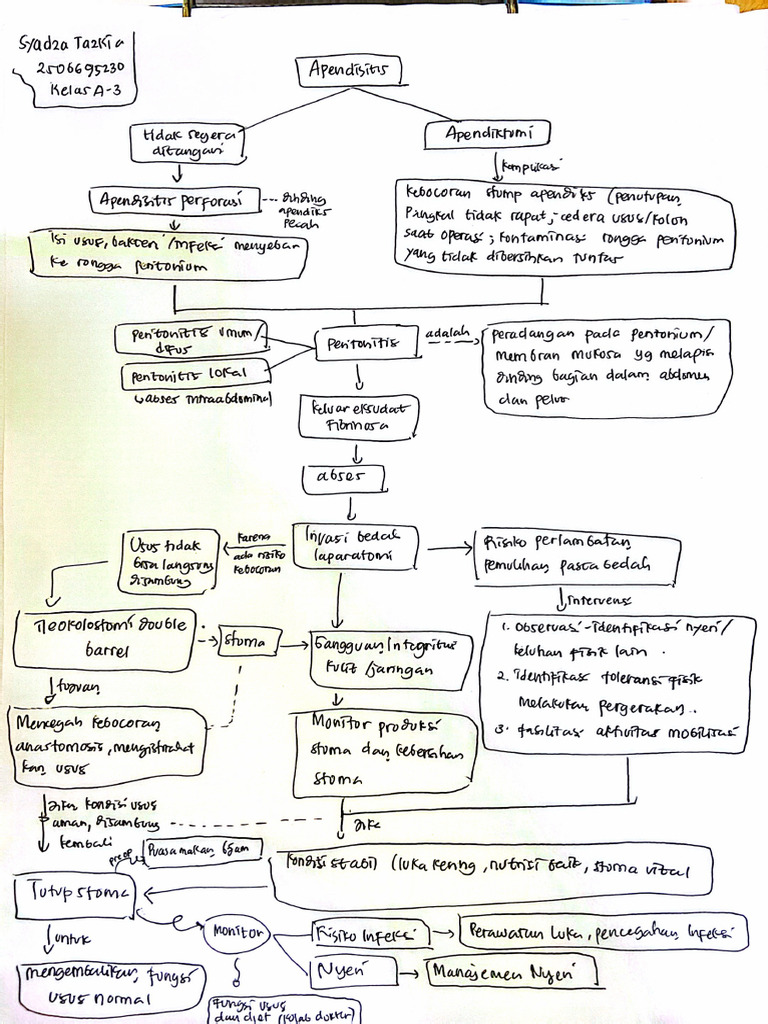 Syadza Tazkia
2506695230
Kelas A-3
Apendisitis
tidak segera
ditangani
Apendiktomi
komplikasi
Apendisitis perforasi
dinding
apendiks
pecah
Kebocoran stump apendiks (penutupan
pangkal tidak rapat; cedera usus/kolon
saat operasi; kontaminasi rongga peritonium
yang tidak dibersihkan tuntas
Isi usus, bakteri/infeksi menyebar
ke rongga peritonium
Peritonitis umum/
difus
peritonitis lokal
↳ abses intraabdominal
Peritonitis
adalah
peradangan pada peritonium/
membran mukosa yg melapisi
dinding bagian dalam abdomen
dan pelvis
keluar eksudat
fibrinosa
abses
Usus tidak
bisa langsung
disambung
karena
ada risiko
kebocoran
Invasi bedah
laparatomi
Risiko perlambatan
pemulihan pasca bedah
intervensi
Ileokolostomi double
barrel
stoma
Gangguan Integritas
kulit/jaringan
1. Observasi - identifikasi nyeri/
keluhan fisik lain.
2. identifikasi toleransi fisik
melakukan pergerakan.
3. fasilitasi aktivitas mobilisasi
tujuan
Mencegah kebocoran
anastomosis, mengistirahat
kan usus
Monitor produksi
stoma dan kebersihan
stoma
jika kondisi usus
aman, disambung
kembali
jika
preop
Puasa makan 6 jam
Kondisi stabil (luka kering, nutrisi baik, stoma vital
Tutup stoma
Monitor
Risiko Infeksi
Perawatan luka, pencegahan infeksi
untuk
Nyeri
Manajemen Nyeri
mengembalikan fungsi
usus normal
Fungsi usus
dan diet (kolab dokter)